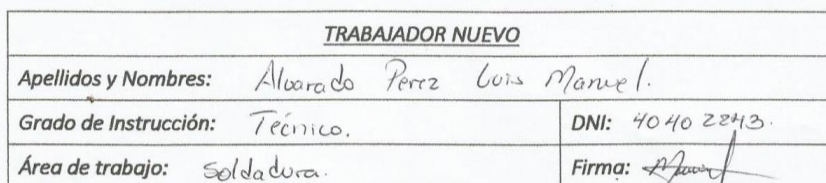 TRABAJADOR NUEVO
Apellidos y Nombres: Alvarado Perez Luis Manuel.
Grado de Instrucción: Técnico. DNI: 40402243.
Área de trabajo: Soldadura. Firma: